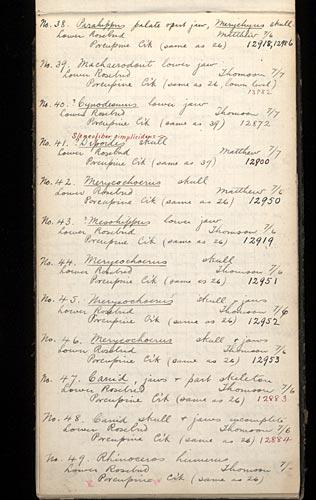 No. 38. Parahippus palate & part jaw, Merychyus skull
Lower Rosebud Matthew 7/6
Porcupine Crk (same as 26) 12918, 12916
No. 39. Machaerodont lower jaw
Lower Rosebud Thomson 7/7
Porcupine Crk (same as 26, low level)
No. 40. ?Cynodesmus lower jaw
Lower Rosebud Thomson 7/7
Porcupine Crk (same as 39) 12872
Steneofiber simplicidens
No. 41. skull
Lower Rosebud Matthew 7/7
Porcupine Crk (same as 39) 12900
No. 42. Merycochoerus skull
Lower Rosebud Matthew 7/6
Porcupine Crk (same as 26) 12950
No. 43. ?Mesohippus lower jaw
Lower Rosebud Thomson 7/6
Porcupine Crk (same as 26) 12919
No. 44. Merycochoerus skull
Lower Rosebud Thomson 7/6
Porcupine Crk (same as 26) 12951
No. 45. Merycochoerus skull & jaws
Lower Rosebud Thomson 7/6
Porcupine Crk (same as 26) 12952
No. 46. Merycochoerus skull & jaws
Lower Rosebud Thomson 7/6
Porcupine Crk (same as 26) 12953
No. 47. Canid, jaws & part skeleton
Lower Rosebud Thomson 7/6
Porcupine Crk (same as 26) 12883
No. 48. Canid skull & jaws incomplete
Lower Rosebud Thomson 7/6
Porcupine Crk (same as 26) 12884
No. 49. Rhinoceros humerus
Lower Rosebud Thomson
Porcupine Crk (same as 26)